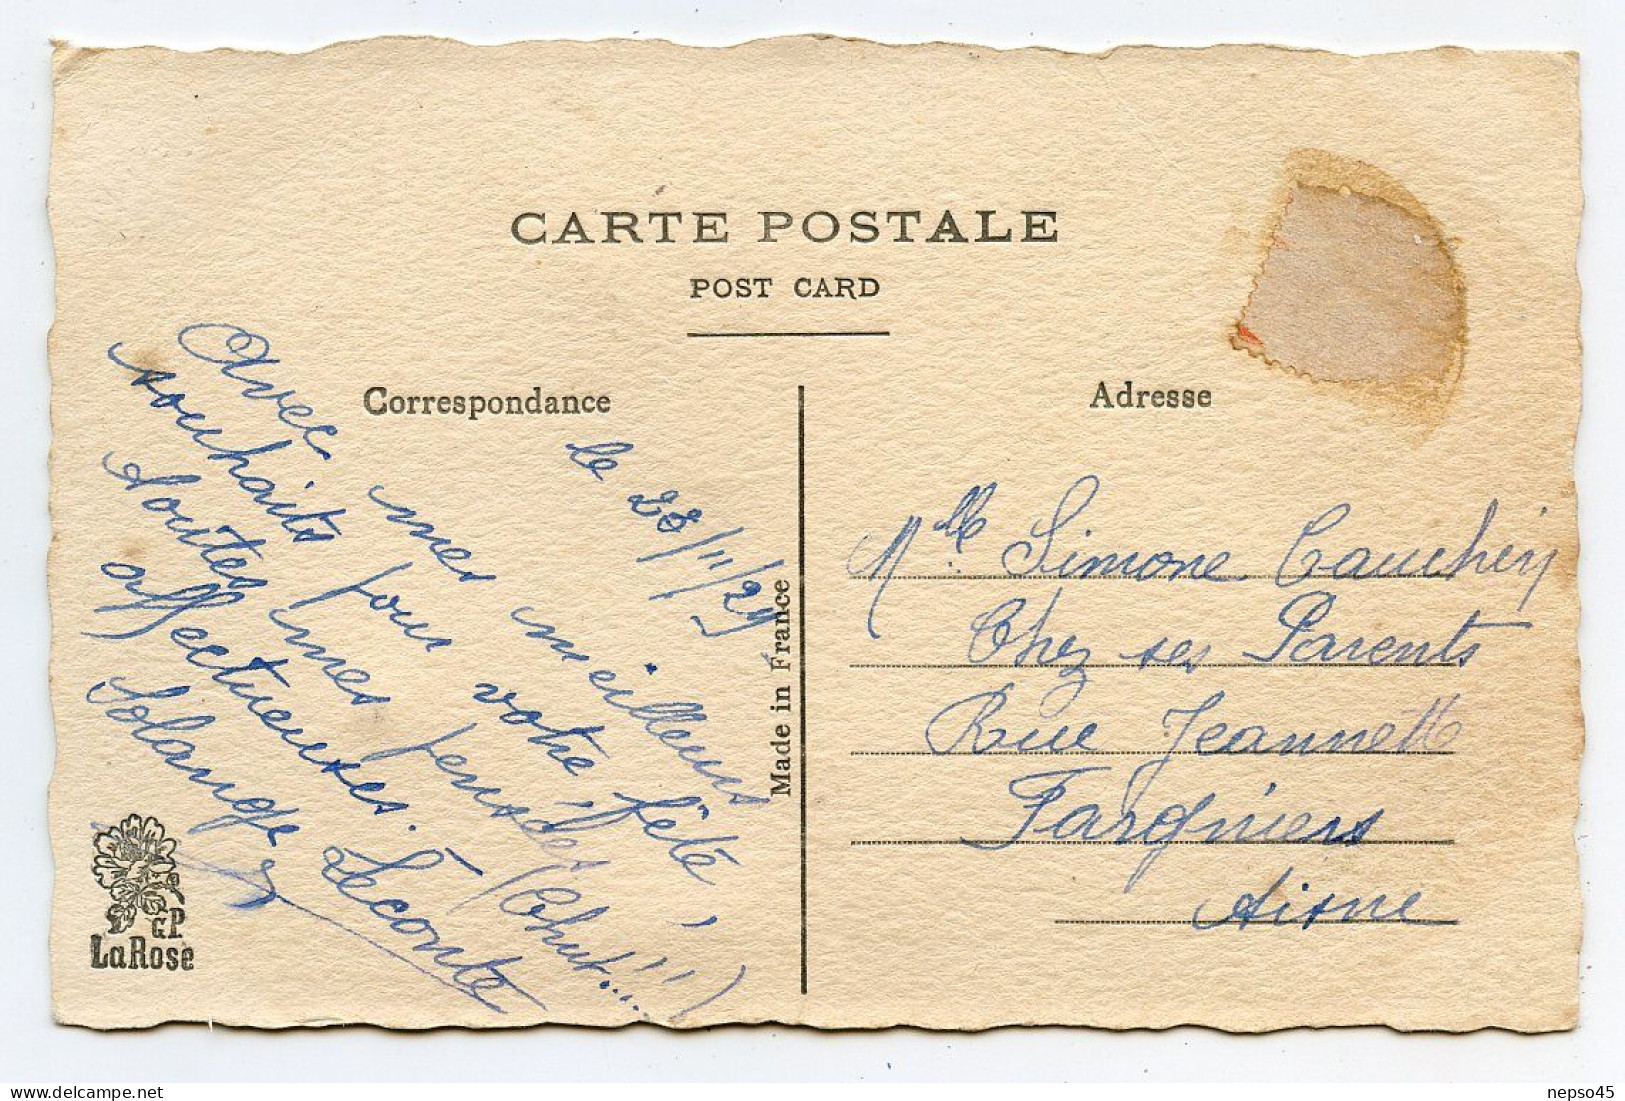 CARTE POSTALE
POST CARD
Correspondance
le 28/11/29
Avec mes meilleurs
souhaits pour votre fête,
toutes mes pensées (Chut!!!...)
affectueuses.
Solange Leconte
GP
LaRose
Made in France
Adresse
Mlle Simone Cauchery
Chez ses Parents
Rue Jeannette
Fargniers
Aisne
nepso45